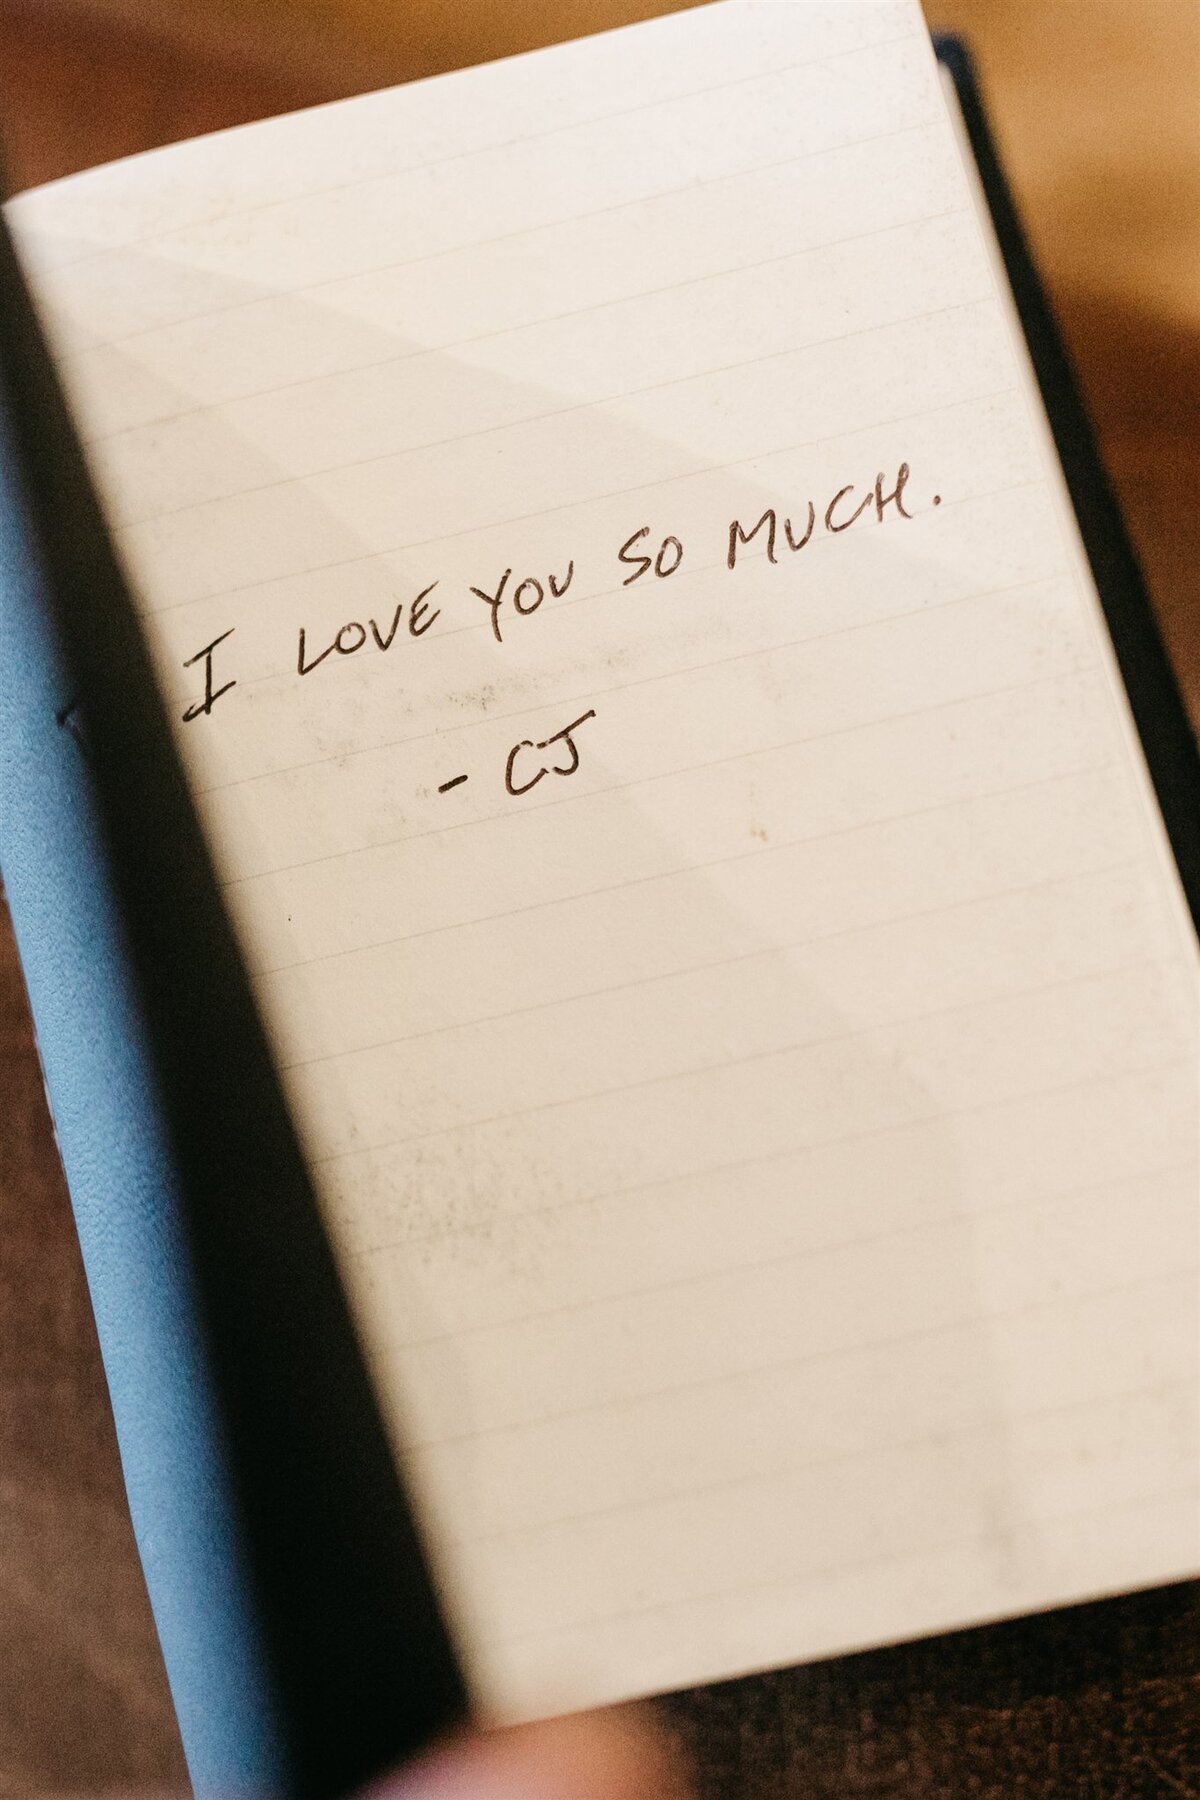 I LOVE YOU SO MUCH.
- CJ